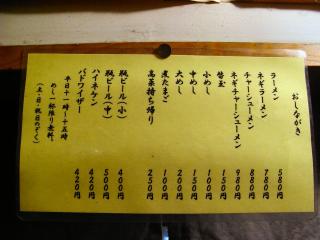 おしながき
ラーメン 580円
ネギラーメン 780円
チャーシューメン 880円
ネギチャーシューメン 980円
替玉 150円
小めし 100円
中めし 150円
大めし 200円
煮たまご 100円
高菜持ち帰り 250円
瓶ビール(小) 400円
瓶ビール(中) 500円
ハイネケン 420円
バドワイザー 420円
平日十一時〜十五時
めし一杯限り無料。
(土・日・祝日のぞく)